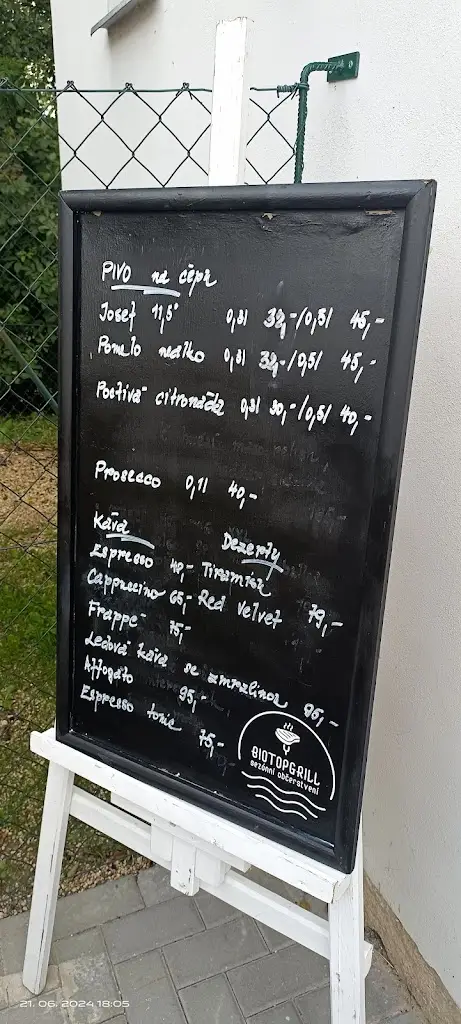 PIVO na čepu
Josef 11,5° 0,3l 32,-/0,5l 45,-
Pomelo nealko 0,3l 32,-/0,5l 45,-
Poctivá citronáda 0,3l 30,-/0,5l 40,-
Prosecco 0,1l 40,-
Káva Dezerty
Espresso 49,- Tiramisu
Cappuccino 65,- Red Velvet 79,-
Frappé 75,-
Ledová káva se zmrzlinou 95,-
Affogato 95,-
Espresso tonic 75,-
BIOTOPGRILL
sezónní občerstvení
21. 06. 2024 18:05